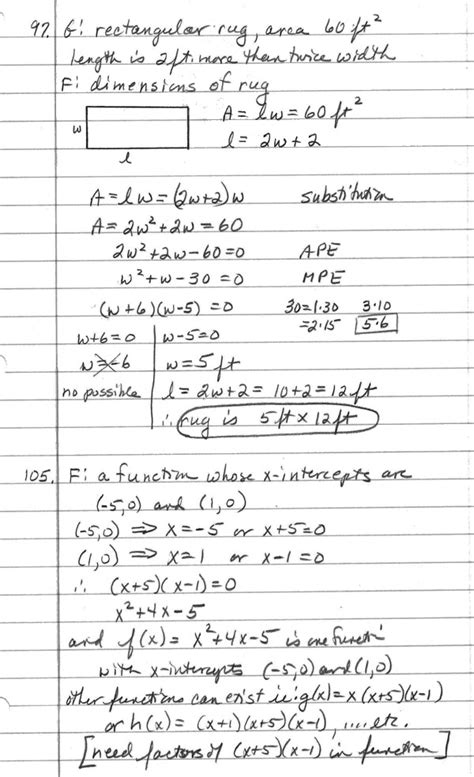 97. G: rectangular rug, area 60 ft²
length is 2ft. more than twice width
F: dimensions of rug
A = lw = 60 ft²
w
l = 2w + 2
l
A = lw = (2w+2)w substitution
A = 2w² + 2w = 60
2w² + 2w - 60 = 0 APE
w² + w - 30 = 0 MPE
(w+6)(w-5) = 0 30 = 1·30 3·10
= 2·15 5·6
w+6=0 w-5=0
w=-6 w = 5 ft
no possible l = 2w+2 = 10+2 = 12 ft
∴ rug is 5 ft x 12 ft
105. F: a function whose x-intercepts are
(-5,0) and (1,0)
(-5,0) ⇒ x=-5 or x+5=0
(1,0) ⇒ x=1 or x-1=0
∴ (x+5)(x-1)=0
x²+4x-5
and f(x) = x²+4x-5 is one functi
with x-intercepts (-5,0) and (1,0)
other functions can exist ie: g(x)=x(x+5)(x-1)
or h(x) = (x+1)(x+5)(x-1), .... etc.
[need factors of (x+5)(x-1) in function]